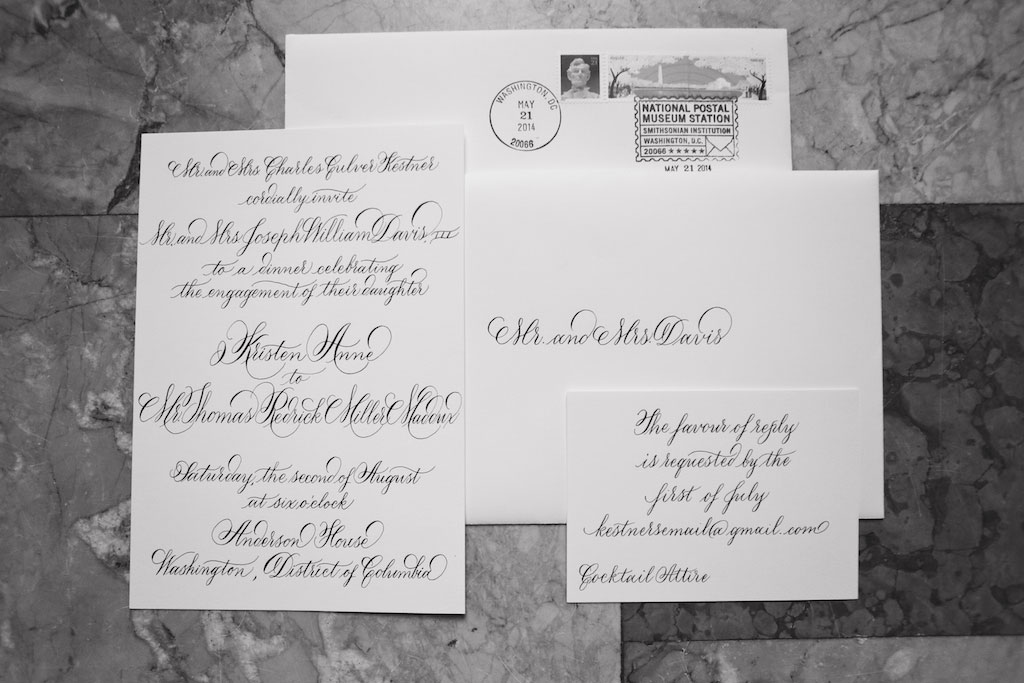 WASHINGTON, DC
MAY
21
2014
20066
NATIONAL POSTAL
MUSEUM STATION
SMITHSONIAN INSTITUTION
WASHINGTON, D.C.
20066 ★★★★★
MAY 21 2014
Mr. and Mrs Charles Culver Kestner
cordially invite
Mr. and Mrs Joseph William Davis, III
to a dinner celebrating
the engagement of their daughter
Kristen Anne
to
Mr. Thomas Redrick Miller Maddux
Saturday, the second of August
at six o'clock
Anderson House
Washington, District of Columbia
Mr. and Mrs. Davis
The favour of reply
is requested by the
first of July
kestnersemail@gmail.com
Cocktail Attire